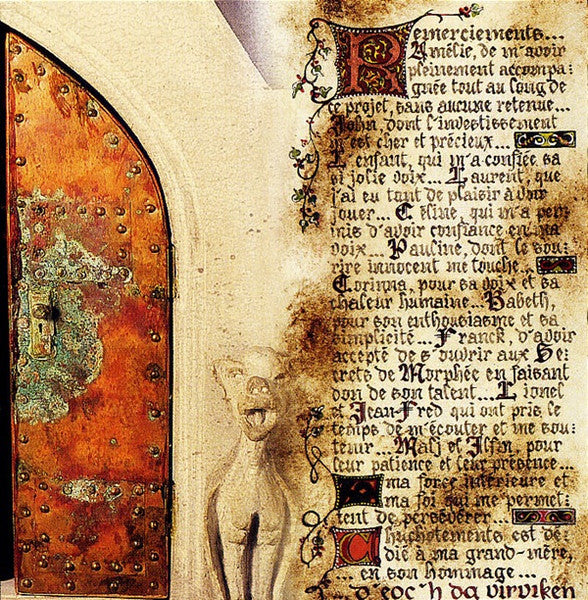 Remerciements...
Amélie, de m'avoir
pleinement accompa-
gnée tout au long de
ce projet, sans aucune retenue...
John, dont l'investissement
m'est cher et précieux...
L'enfant, qui m'a confiée sa
si jolie voix... Laurent, que
j'ai eu tant de plaisir à voir
jouer... Céline, qui m'a per-
mis d'avoir confiance en ma
voix... Pauline, dont le sou-
rire innocent me touche...
Corinna, pour sa voix et sa
chaleur humaine... Babeth,
pour son enthousiasme et sa
simplicité... Franck, d'avoir
accepté de s'ouvrir aux Se-
crets de Morphée en faisant
don de son talent... Lionel
et Jean-Fred qui ont pris le
temps de m'écouter et me sou-
tenir... et pour
leur patience et leur présence...
A ma force intérieure et
à ma foi qui me permet-
tent de persévérer...
Chuchotements est dé-
dié à ma grand-mère,
... en son hommage...